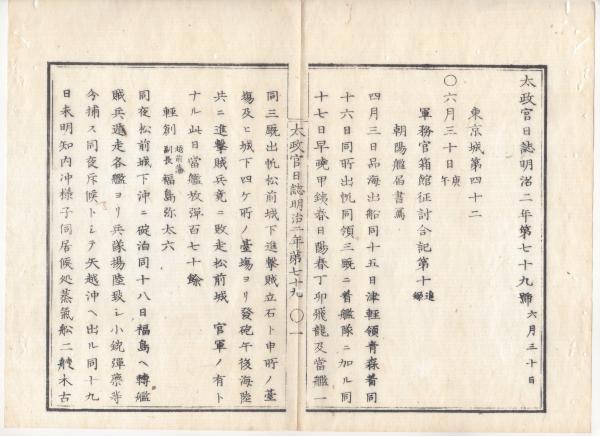 太政官日誌明治二年第七十九號 六月三十日
東京城第四十二
〇六月三十日庚午
軍務官箱館征討合記第十追録
朝陽艦届書寫
四月三日品海出船同十五日津輕領青森着同
十六日同所出帆同領三厩ニ着艦隊ニ加ル同
十七日早曉甲銕春日陽春丁卯飛龍及當艦一
太政官日誌明治二年第七十九 〇一
同三厩出帆松前城下進撃賊立石ト申所ノ臺
塲及ヒ城下四ケ所ノ臺塲ヨリ發砲午後海陸
共ニ進撃賊兵竟ニ敗走松前城 官軍ノ有ト
ナル此日當艦放彈百七十餘
輕創 越前藩 副長 福島弥太六
同夜松前城下沖ニ碇泊同十八日福島ヘ轉艦
賊兵遁走各艦ヨリ兵隊揚陸致シ小銃彈藥等
分捕ス同夜斥候トシテ矢越沖ヘ出ル同十九
日未明知内沖様子伺居候処蒸氣船二艘木古